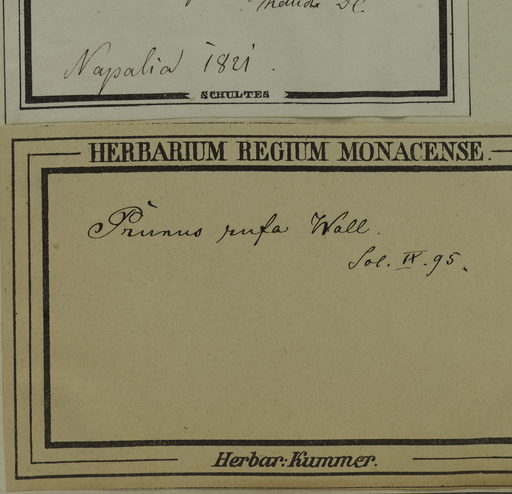 Napalia 1821.
SCHULTES
HERBARIUM REGIUM MONACENSE.
Prunus rufa Wall.
Sol. IX. 95.
Herbar: Kummer.